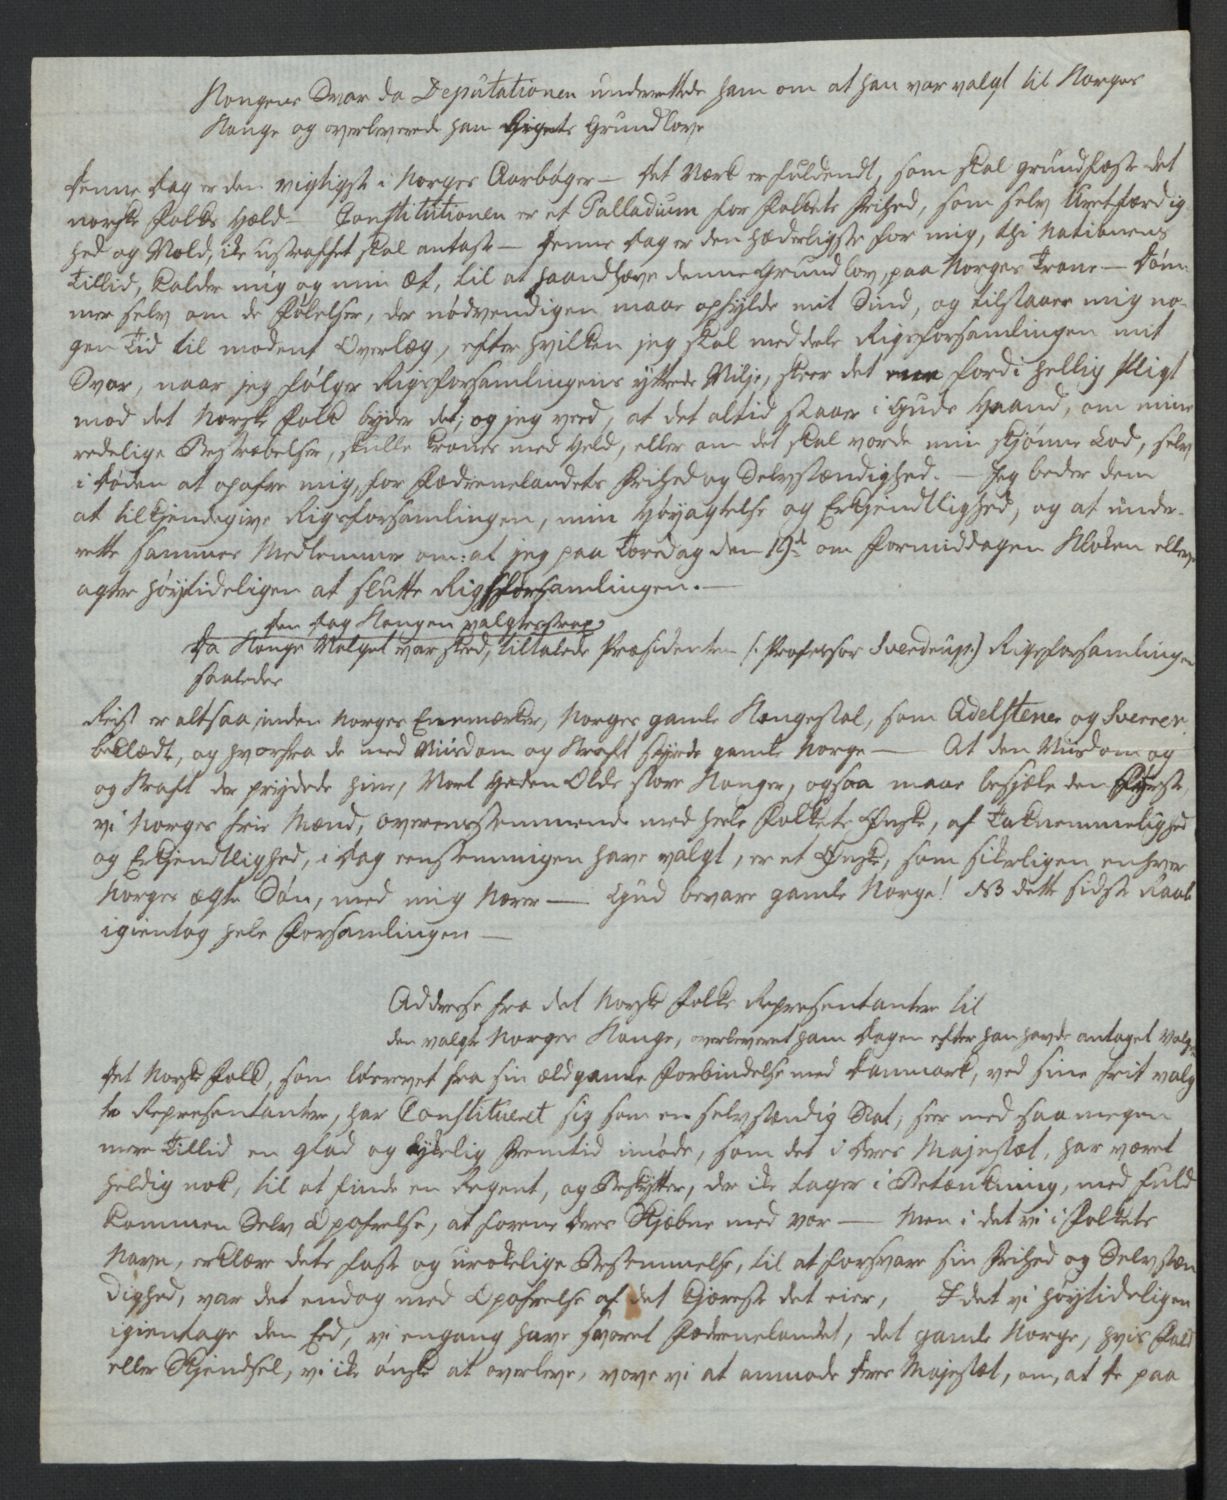 Kongens Svar da Deputationen underrettede ham om at han var valgt til Norges
Konge og overleverede ham Rigets Grundlove
Denne Dag er den vigtigste i Norges Aarbøger — Det Værk er fuldendt, som skal grundfæste det
norske Folks Held — Constitutionen er et Palladium for Folkets Frihed, som selv Uretfærdig
hed og Vold, ike ustraffet skal antaste — Denne Dag er den hæderligste for mig, thi Nationens
Tillid, kalder mig og min Æt, til at haandhæve denne Grundlov, paa Norges Trone — Døm-
mer selv om de Følelser, der nødvendigen maae opfylde mit Sind, og tilstaaer mig no-
gen Tid til modent Overlæg, efter hvilken jeg skal meddele Rigsforsamlingen mit
Svar, naar jeg følger Rigsforsamlingens yttrede Vilje, skeer det fordi hellig Pligt
mod det Norske Folk byder det; og jeg veed, at det altid staaer i Guds Haand, om mine
redelige Bestræbelser, skulle krones med Held, eller om det skal vorde min skjønne Lod, selv
i Døden at opofre mig, for Fædrenelandets Frihed og Selvstændighed. — Jeg beder dem
at tilkjendegive Rigsforsamlingen, min Høyagtelse og Erkjendtlighed, og at under-
rette sammes Medlemmer om: at jeg paa Torsdag den 19d om Formiddagen Kloken elleve
agter høytideligen at slutte Rigsforsamlingen. —
den Dag Kongen valgtes
Da Konge Valget var skeed, tiltalede Præsidenten (: Professor Sverdrup:) Rigsforsamlingen
saaledes
Reist er altsaa inden Norges Enemærker, Norges gamle Kongestol, som Adelstener og Sverrer
beklædt, og hvorfra de med Viisdom og Kraft styrede gamle Norge — At den Viisdom og
og Kraft der prydede hine, Vort Heden Olds store Konger, ogsaa maae besjæle den Fyrste,
vi Norges frie Mænd, overensstemmende med heele Folkets Ønske, af Taknemmelighed
og Erkjendtlighed, i Dag eenstemmigen have valgt, er et Ønske, som sikerligen enhver
Norges ægte Søn, med mig Nærer — Gud bevare gamle Norge! NB dette sidste Raab
igientog hele Forsamlingen —
Addresse fra det Norske Folks Representantere til
den valgte Norges Konge, overleveret ham Dagen efter han havde antaget Valget
Det Norske Folk, som løsrevet fra sin ældgamle Forbindelse med Danmark, ved sine frit valg
te Representantere, har Constitueret sig som en selvstændig Stat, seer med saa megen
mere Tillid en glad og lykelig Fremtid imøde, som det i Deres Majestæt, har været
heldig nok, til at finde en Regent, og Beskytter, der ike tager i Betænkning, med fuld
kommen Selv Opofrelse, at forene Deres Skjæbne med vor — Men i det vi i Folkets
Navn, erklære dets faste og urokelige Bestemmelse, til at forsvare sin Frihed og Selvstæn
dighed, var det endog med Opofrelse af det Kjæreste det eier, I det vi høytideligen
igientage den Eed, vi engang have svoret Fædrenelandet, det gamle Norge, hvis Fald
eller Skjendsel, vi ike ønske at overleve, vove vi at anmode Deres Majestæt, om, at De paa